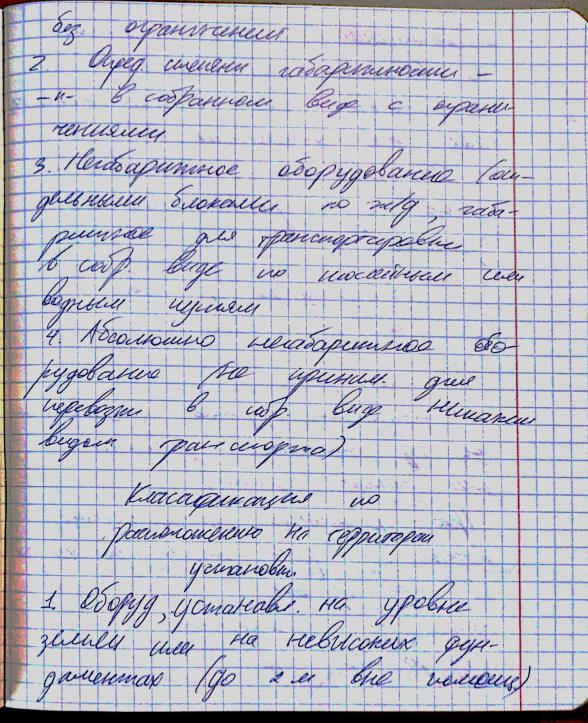 без ограничений
2. Опред. степени габаритности –
–"– в собранном виде с ограни-
чениями
3. Негабаритное оборудование (от-
дельными блоками по ж/д, габа-
ритное для транспортировки
в собр. виде по шоссейным или
водным путям
4. Абсолютно негабаритное обо-
рудование (не приним. для
перевозки в собр виде никаким
видом транспорта)
Классификация по
расположению на территории
установки
1. Оборуд, установл. на уровне
земли или на невысоких фун-
даментах (до 2 м вне помещ)